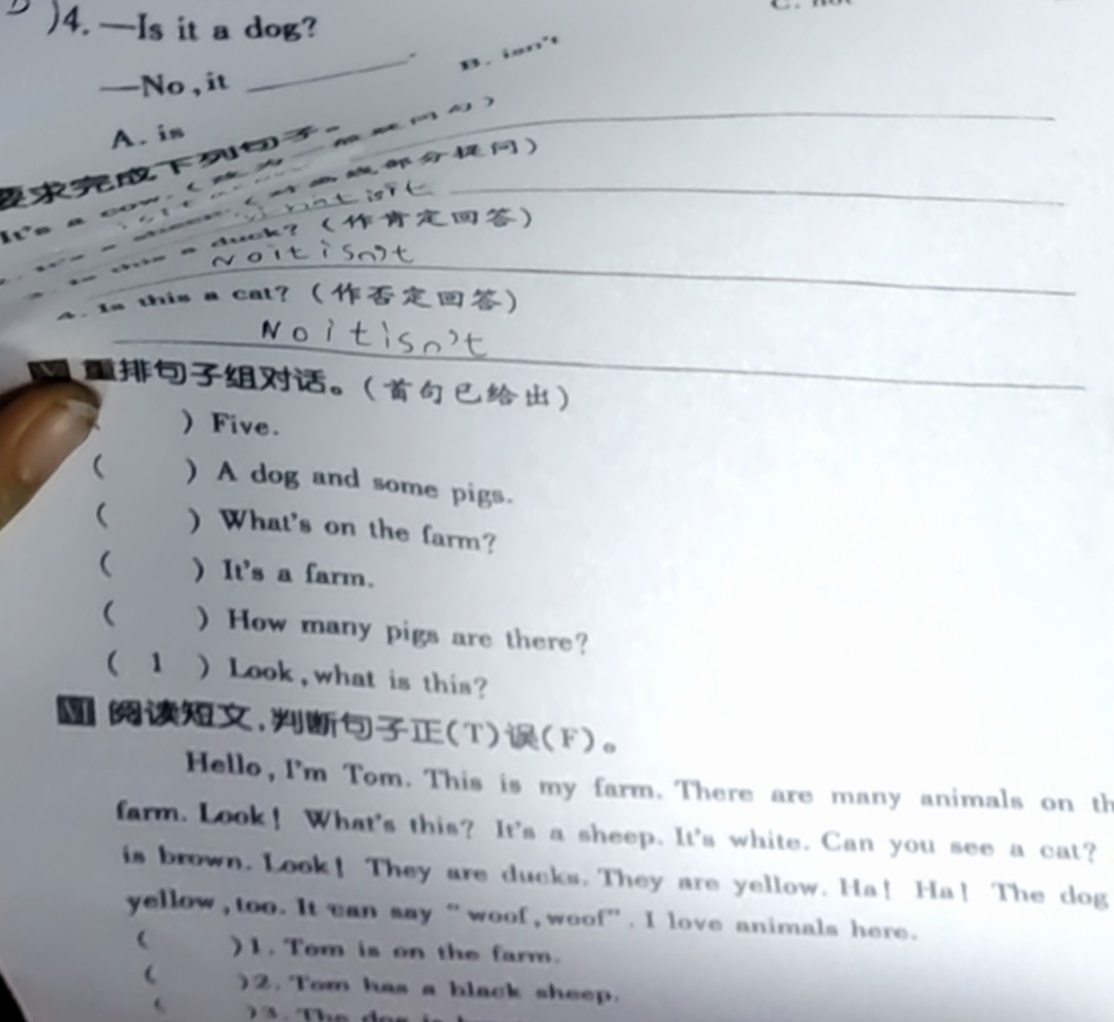 )4. —Is it a dog?
—No, it ________.
A. is B. isn't
要求完成下列句子。
It's a cow. (改为一般疑问句)
(对画线部分提问)
3. Is this a duck? (作肯定回答)
No it isn't
4. Is this a cat? (作否定回答)
No it isn't
Ⅴ 重排句子组对话。(首句已给出)
) Five.
( ) A dog and some pigs.
( ) What's on the farm?
( ) It's a farm.
( ) How many pigs are there?
( 1 ) Look, what is this?
Ⅵ 阅读短文,判断句子正(T)误(F)。
Hello, I'm Tom. This is my farm. There are many animals on th
farm. Look! What's this? It's a sheep. It's white. Can you see a cat?
is brown. Look! They are ducks. They are yellow. Ha! Ha! The dog
yellow, too. It can say "woof, woof". I love animals here.
( )1. Tom is on the farm.
( )2. Tom has a black sheep.
( )3. The dog is